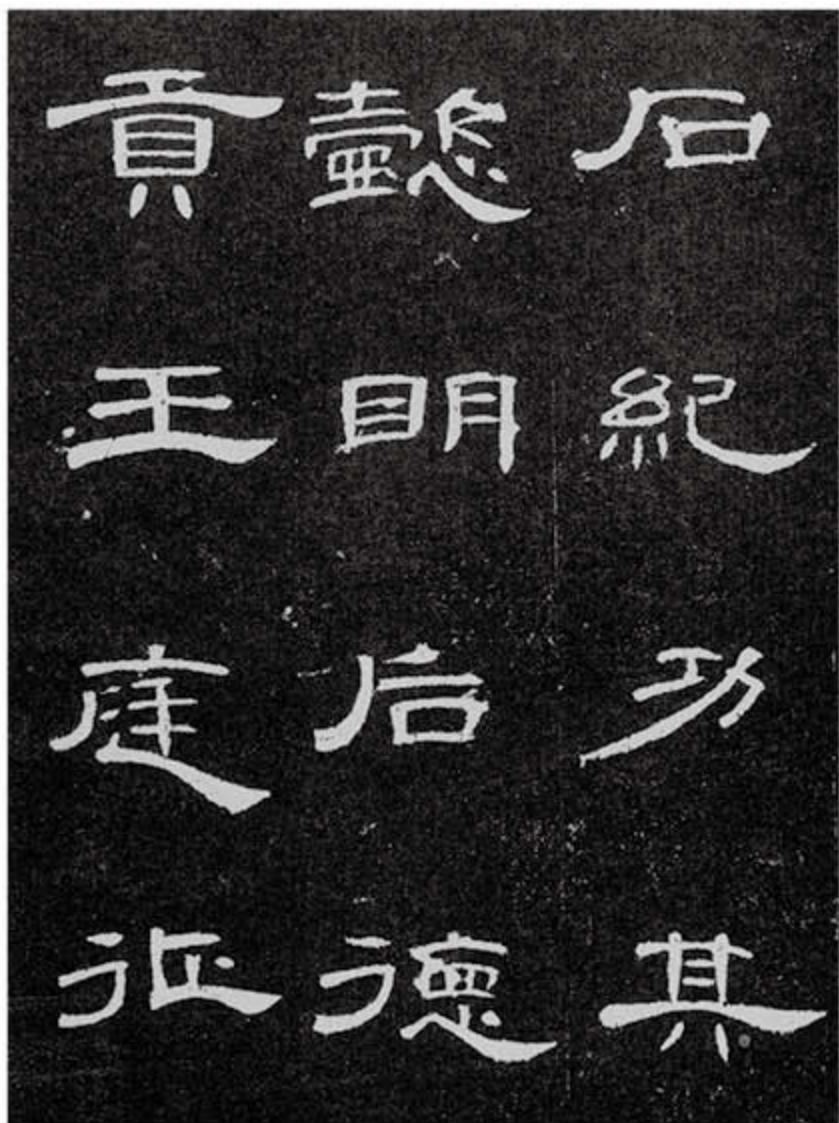 石紀功其
懿明后德
貢王庭征